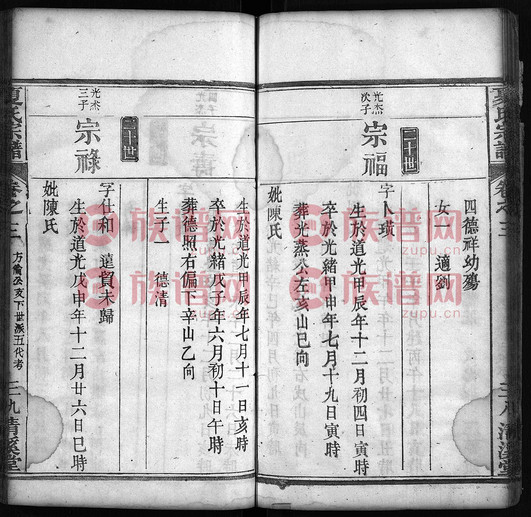 夏氏宗譜
卷之三
三八 清溪堂
四德祥幼殤
女一 適劉
二十世
光杰次子
宗福
字人璜
生於道光甲辰年十二月初四日寅時
卒於光緒甲申年七月十九日寅時
葬光蒸公左亥山巳向
妣陳氏
生於道光甲辰年七月十一日亥時
卒於光緒戊子年六月初十日午時
葬德照右偏下辛山乙向
生子一 德清
二十世
光杰三子
宗祿
字仕和 遠貿未歸
生於道光戊申年十二月廿六日巳時
妣陳氏
夏氏宗譜
卷之三
方崙公支下世派五代考
三九 清溪堂
族谱网
zupu.cn
族谱网
zupu.cn
族谱网
zupu.cn
族谱网
zupu.cn